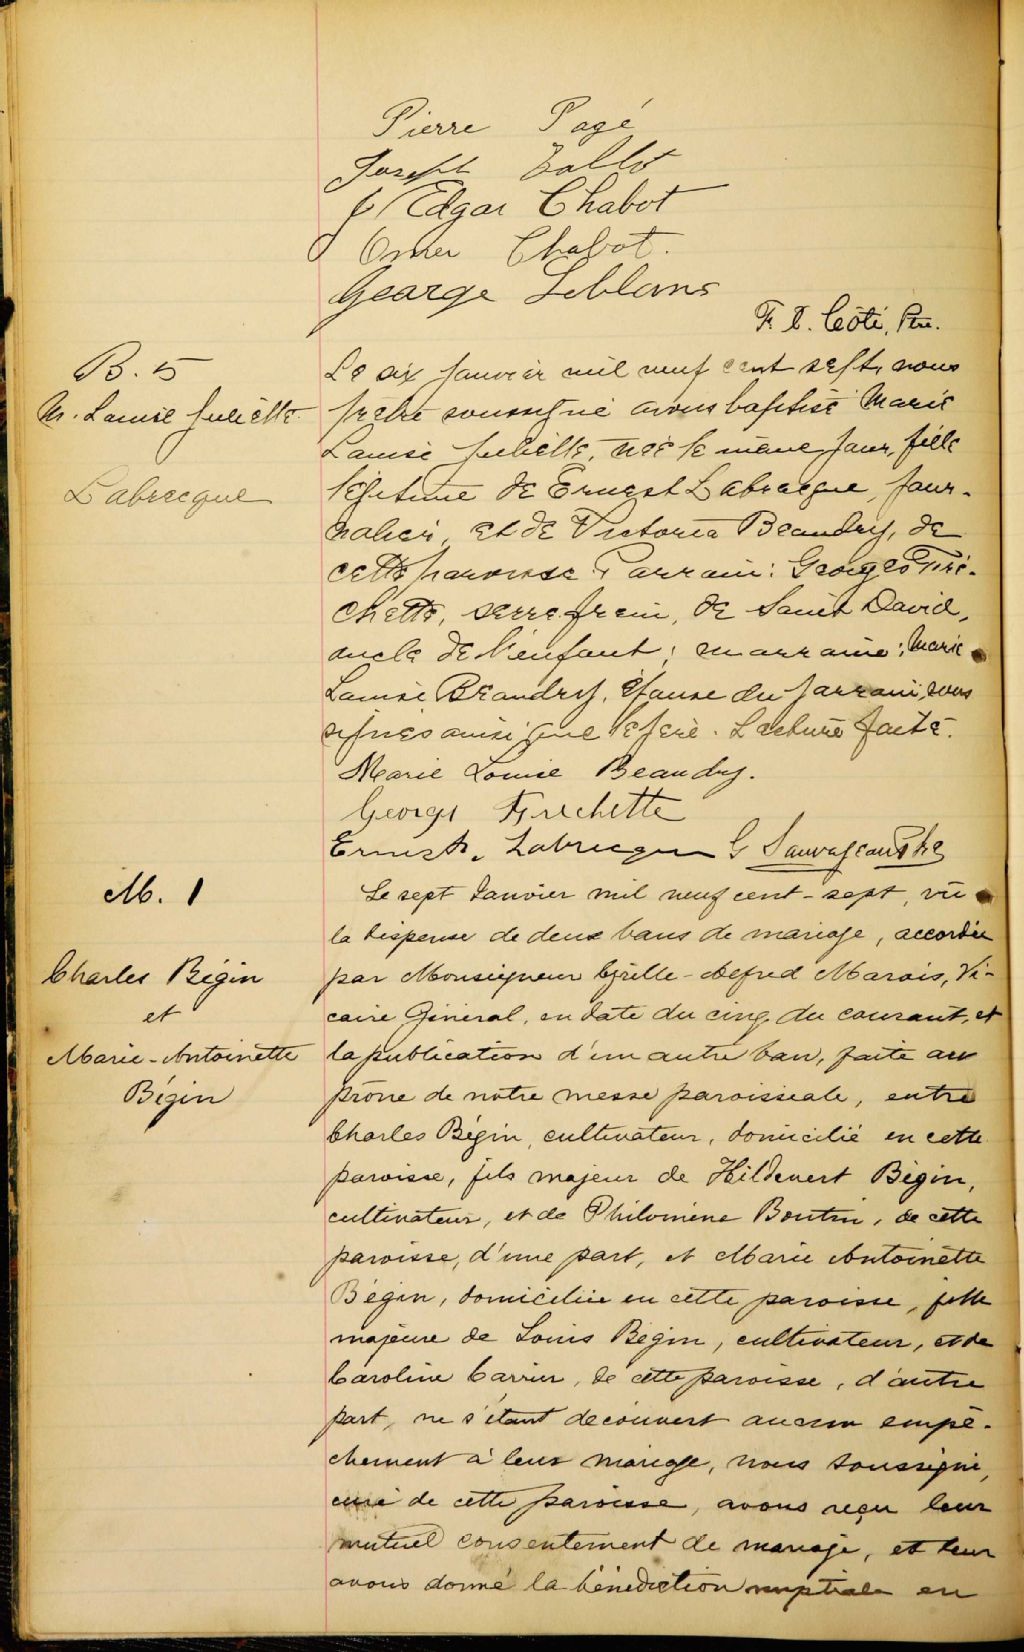 Pierre Pagé
Joseph
J Edgar Chabot
Omer Chabot.
George Leblons
F. X. Côté, Ptre.
B. 5
M. Louise Juliette
Labrecque
Le six janvier mil neuf cent sept, nous
prêtre soussigné avons baptisé Marie
Louise Juliette, née le même jour, fille
légitime de Ernest Labrecque, jour-
nalier, et de Victoria Beaudry, de
cette paroisse. Parrain: Georges Fré-
chette, serre frein, de Saint David,
oncle de l'enfant; marraine: Marie
Louise Beaudry, épouse du parrain, sous
signés ainsi que le père. Lecture faite.
Marie Louise Beaudry.
George Frechette
Ernest Labrecque G Sauvageau Ptre
M. 1
Charles Bégin
et
Marie-Antoinette
Bégin
Le sept Janvier mil neuf cent-sept, vu
la dispense de deux bans de mariage, accordée
par Monseigneur Cyrille-Alfred Marois, Vi-
caire Général, en date du cinq du courant, et
la publication d'un autre ban, faite au
prône de notre messe paroissiale, entre
Charles Bégin, cultivateur, domicilié en cette
paroisse, fils majeur de Hildevert Bégin,
cultivateur, et de Philomène Boutin, de cette
paroisse, d'une part, et Marie Antoinette
Bégin, domiciliée en cette paroisse, fille
majeure de Louis Bégin, cultivateur, et de
Caroline Carrier, de cette paroisse, d'autre
part, ne s'étant découvert aucun empê-
chement à leur mariage, nous soussigné,
curé de cette paroisse, avons reçu leur
mutuel consentement de mariage, et leur
avons donné la bénédiction nuptiale en